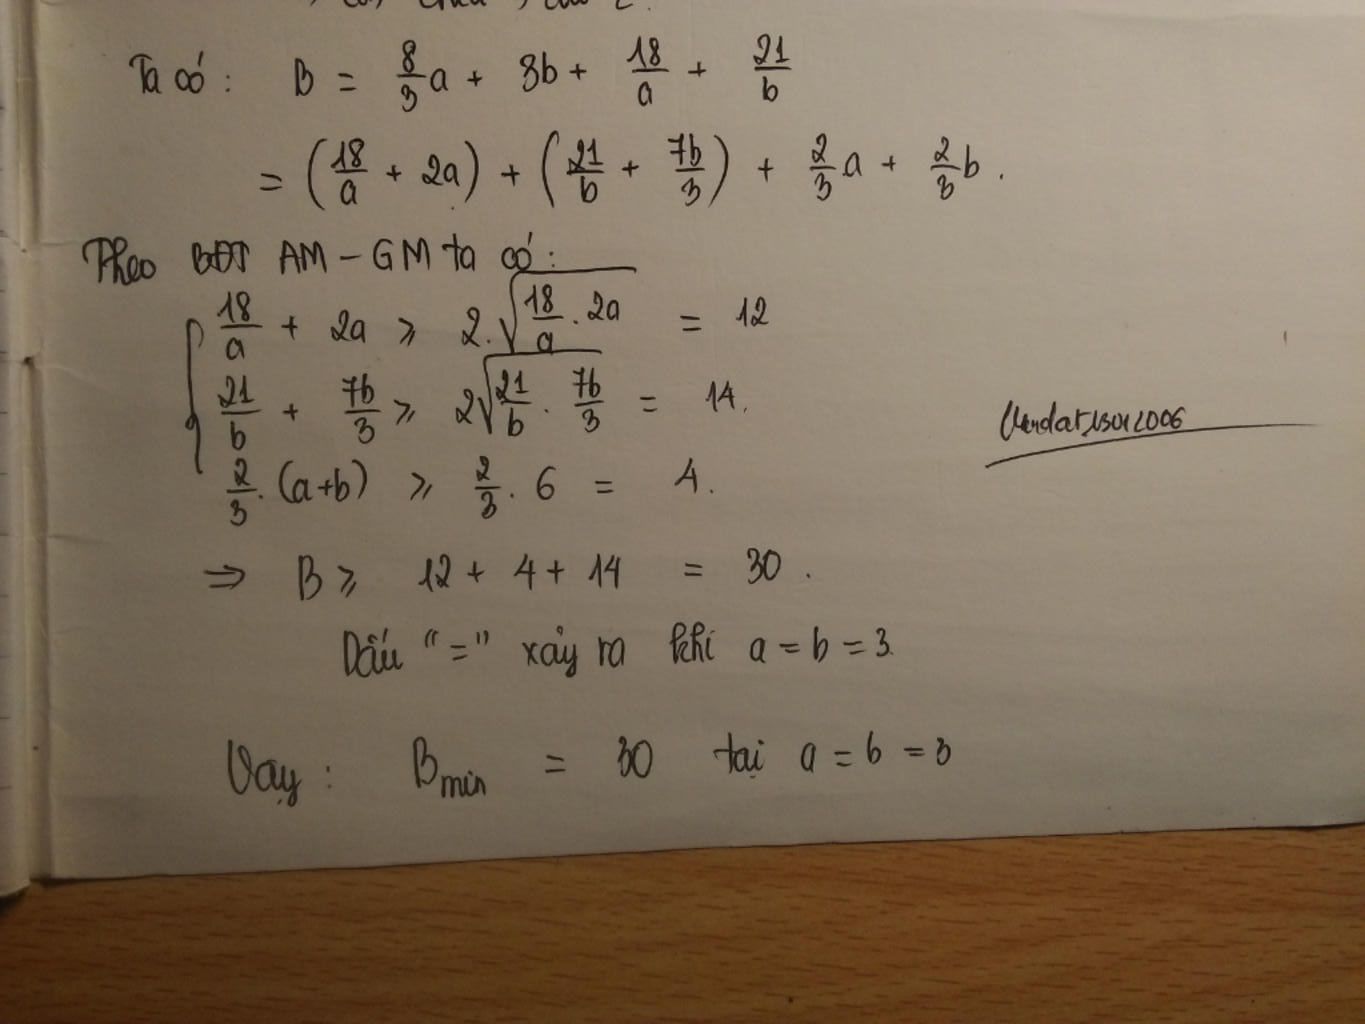 Ta có: B = 8/3 a + 3b + 18/a + 21/b
= (18/a + 2a) + (21/b + 7b/3) + 2/3 a + 2/3 b.
Theo BĐT AM - GM ta có:
18/a + 2a ≥ 2.√(18/a . 2a) = 12
21/b + 7b/3 ≥ 2√(21/b . 7b/3) = 14.
2/3 . (a+b) ≥ 2/3 . 6 = 4.
⇒ B ≥ 12 + 4 + 14 = 30.
Dấu "=" xảy ra khi a = b = 3.
Vậy: Bmin = 30 tại a = b = 3